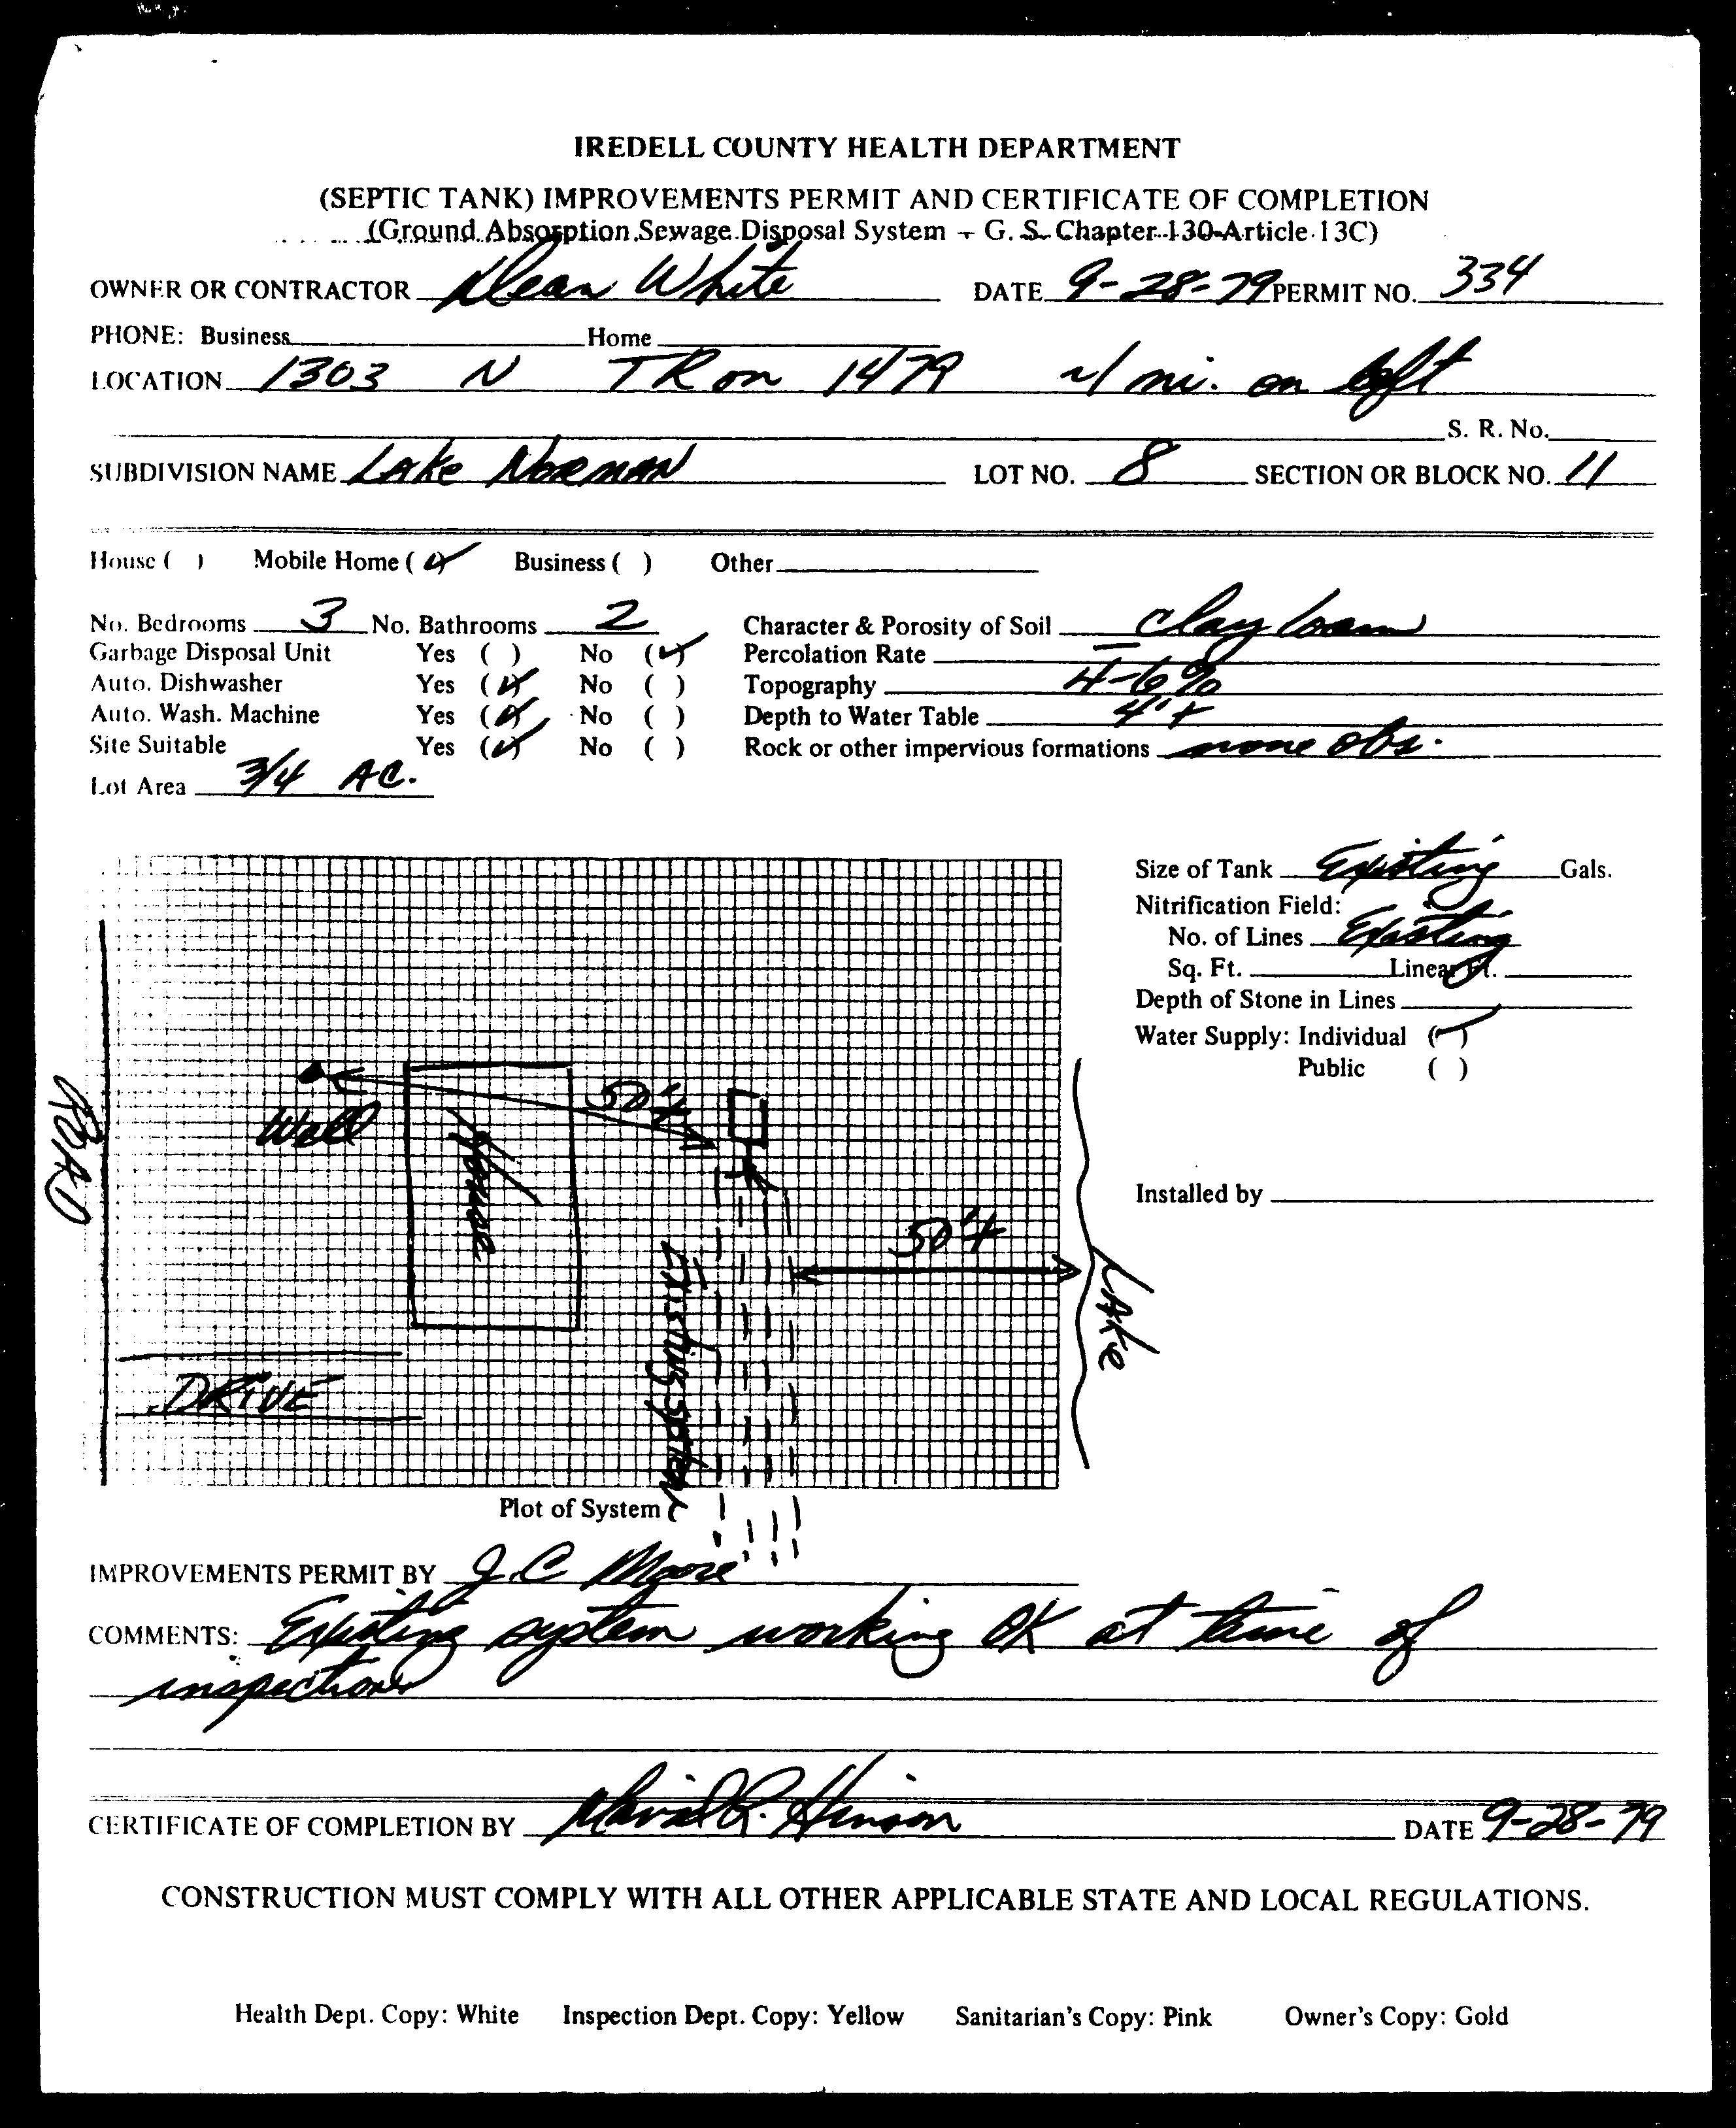 IREDELL COUNTY HEALTH DEPARTMENT
(SEPTIC TANK) IMPROVEMENTS PERMIT AND CERTIFICATE OF COMPLETION
(Ground Absorption Sewage Disposal System - G. S. Chapter 130-Article 13C)
OWNER OR CONTRACTOR Dean White DATE 9-28-79 PERMIT NO. 334
PHONE: Business Home
LOCATION 1303 N TR on 1479 ~1 mi. on left
S. R. No.
SUBDIVISION NAME Lake Norman LOT NO. 8 SECTION OR BLOCK NO. 11
House ( ) Mobile Home (✓) Business ( ) Other
No. Bedrooms 3 No. Bathrooms 2 Character & Porosity of Soil clay loam
Garbage Disposal Unit Yes ( ) No (✓) Percolation Rate —
Auto. Dishwasher Yes (✓) No ( ) Topography 4-6%
Auto. Wash. Machine Yes (✓) No ( ) Depth to Water Table 4'+
Site Suitable Yes (✓) No ( ) Rock or other impervious formations none obs.
Lot Area 3/4 AC.
Size of Tank Existing Gals.
Nitrification Field:
No. of Lines Existing
Sq. Ft. Linear Ft.
Depth of Stone in Lines
Water Supply: Individual (✓)
Public ( )
Installed by
ROAD
Well
House
50'+
50'+
Existing System
LAKe
DRIVE
Plot of System
IMPROVEMENTS PERMIT BY J.C Moore
COMMENTS: Existing system working OK at time of
inspection
CERTIFICATE OF COMPLETION BY David R. Hinson DATE 9-28-79
CONSTRUCTION MUST COMPLY WITH ALL OTHER APPLICABLE STATE AND LOCAL REGULATIONS.
Health Dept. Copy: White Inspection Dept. Copy: Yellow Sanitarian's Copy: Pink Owner's Copy: Gold